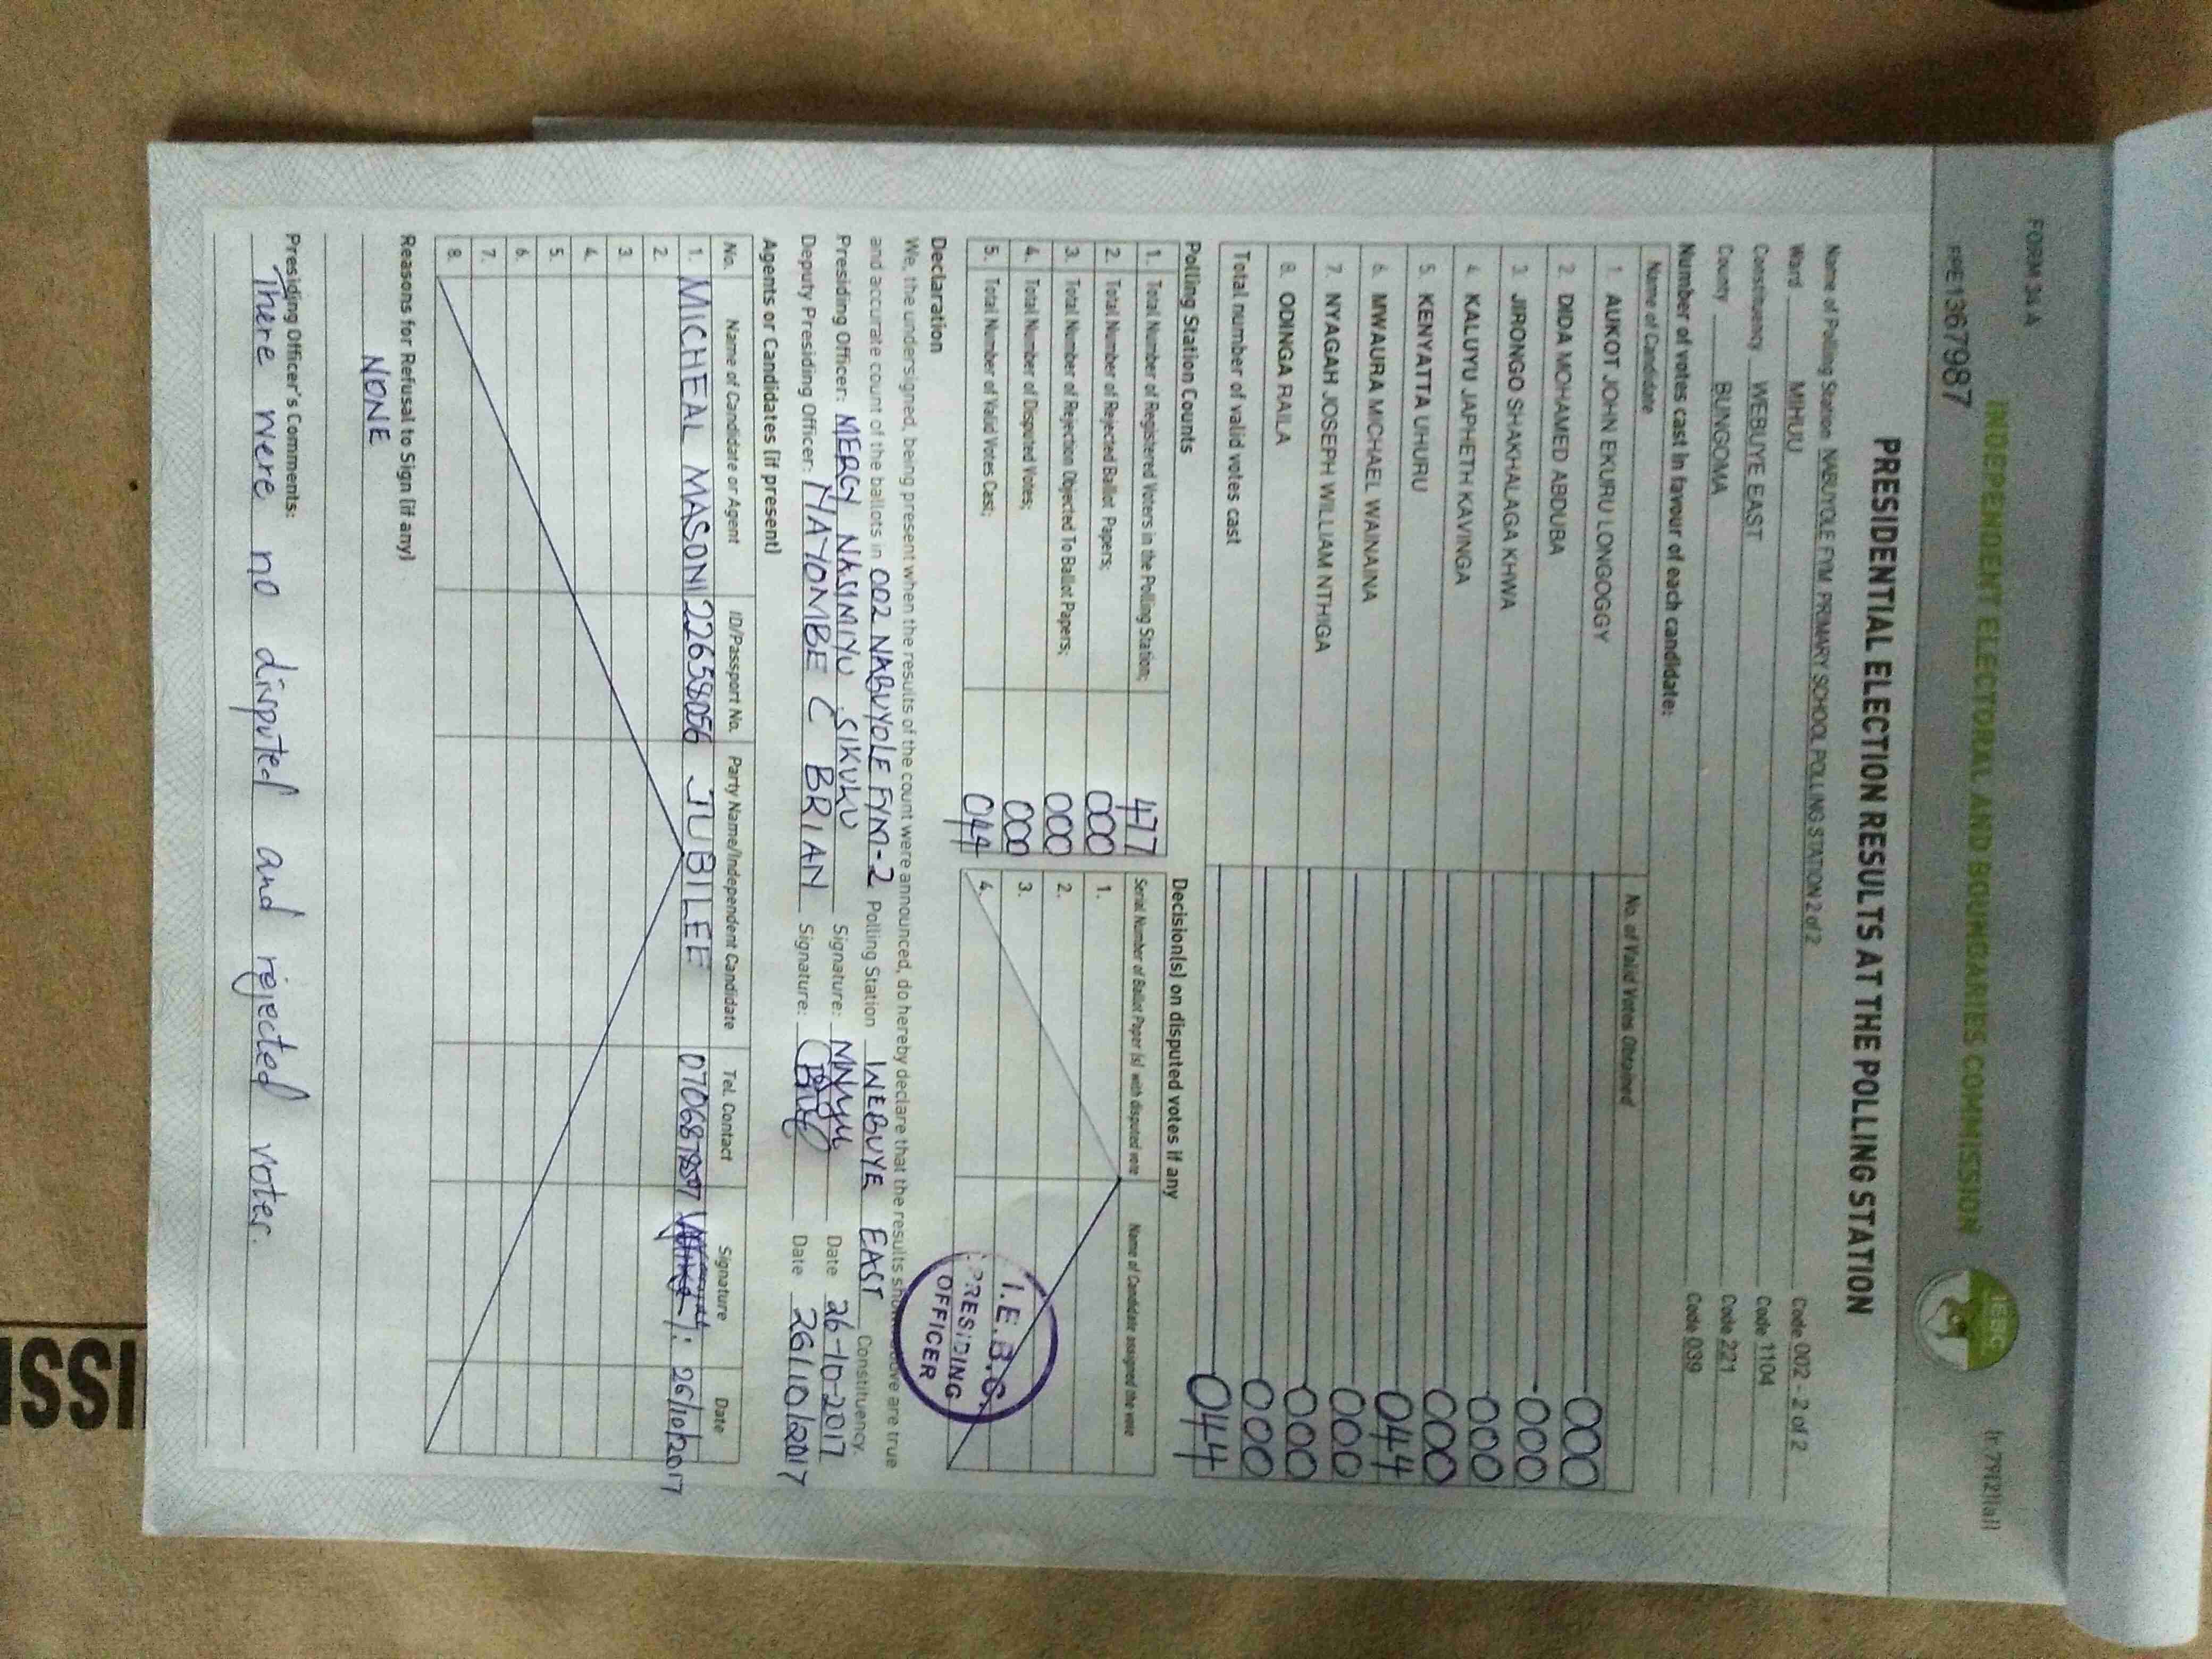 FORM 34 A
(r.79(2)(a))
INDEPENDENT ELECTORAL AND BOUNDARIES COMMISSION
IEBC
PPE1367987
PRESIDENTIAL ELECTION RESULTS AT THE POLLING STATION
Name of Polling Station NABUYOLE FYM PRIMARY SCHOOL POLLING STATION 2 of 2 Code 002 - 2 of 2
Ward MIHUU Code 1104
Constituency WEBUYE EAST Code 221
County BUNGOMA Code 039
Number of votes cast in favour of each candidate:
Name of Candidate No. of Valid Votes Obtained
1. AUKOT JOHN EKURU LONGOGGY 000
2. DIDA MOHAMED ABDUBA 000
3. JIRONGO SHAKHALAGA KHWA 000
4. KALUYU JAPHETH KAVINGA 000
5. KENYATTA UHURU 044
6. MWAURA MICHAEL WAINAINA 000
7. NYAGAH JOSEPH WILLIAM NTHIGA 000
8. ODINGA RAILA 000
Total number of valid votes cast 044
Polling Station Counts
1. Total Number of Registered Voters in the Polling Station; 477
2. Total Number of Rejected Ballot Papers; 000
3. Total Number of Rejection Objected To Ballot Papers; 000
4. Total Number of Disputed Votes; 000
5. Total Number of Valid Votes Cast; 044
Decision(s) on disputed votes if any
Serial Number of Ballot Paper (s) with disputed vote Name of Candidate assigned the vote
1.
2.
3.
4.
I.E.B.C.
PRESIDING
OFFICER
Declaration
We, the undersigned, being present when the results of the count were announced, do hereby declare that the results shown above are true
and accurate count of the ballots in 002 NABUYOLE FYM-2 Polling Station WEBUYE EAST Constituency.
Presiding Officer: MERCY NASIMIYU SIKUKU Signature: Date 26-10-2017
Deputy Presiding Officer: NAYOMBE C BRIAN Signature: Date 26/10/2017
Agents or Candidates (if present)
No. Name of Candidate or Agent ID/Passport No. Party Name/Independent Candidate Tel. Contact Signature Date
1. MICHEAL MASONI 22658056 JUBILEE 26/10/2017
2.
3.
4.
5.
6.
7.
8.
Reasons for Refusal to Sign (if any)
NONE
Presiding Officer's Comments:
There were no disputed and rejected votes.
ISSI